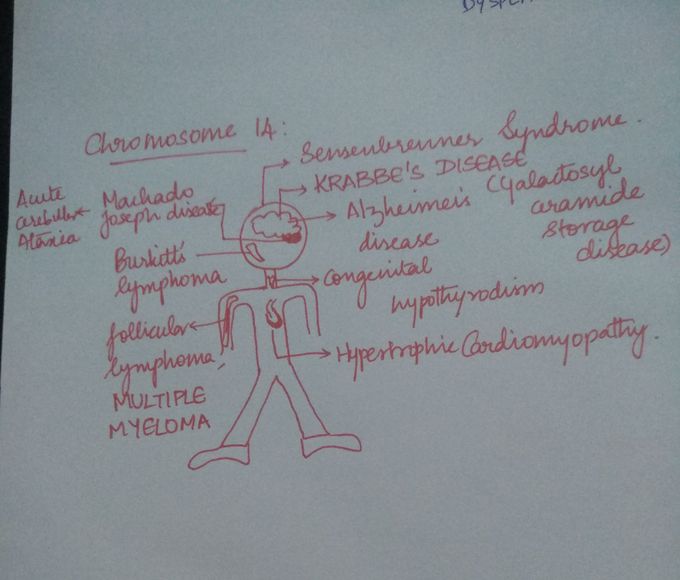 DYSPL
Chromosome 14:
Sensenbrenner Syndrome.
KRABBE'S DISEASE
(Galactosyl
ceramide
storage
disease)
Alzheimeis
disease
Congenital
hypothyrodism
Hypertrophic Cardiomyopathy.
Acute
cerebellar
Ataxia
Machado
Joseph disease
Burkitt's
lymphoma
follicular
lymphoma,
MULTIPLE
MYELOMA